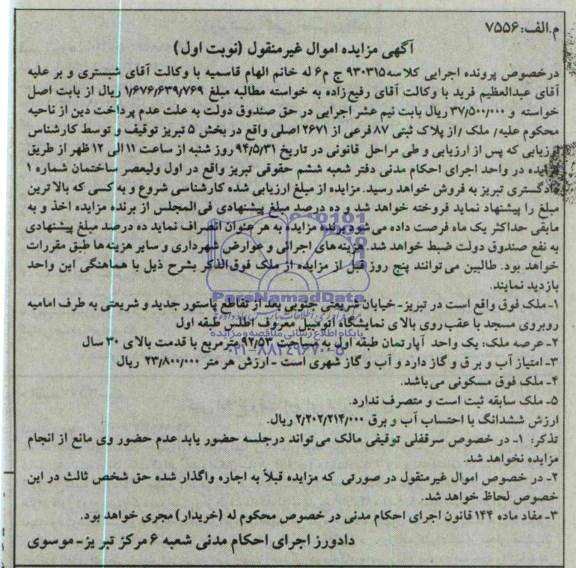 م.الف:۷۵۵۶
آگهی مزایده اموال غیرمنقول (نوبت اول)
درخصوص پرونده اجرایی کلاسه ۹۳۰۳۱۵ ج م۶ له خانم الهام قاسمیه با وکالت آقای شبستری و بر علیه
آقای عبدالعظیم فرید با وکالت آقای رفیع زاده به خواسته مطالبه مبلغ ۱/۶۷۶/۶۳۹/۷۶۹ ریال از بابت اصل
خواسته و ۳۷/۵۰۰/۰۰۰ ریال بابت نیم عشر اجرایی در حق صندوق دولت به علت عدم پرداخت دین از ناحیه
محکوم علیه/ ملک /از پلاک ثبتی ۸۷ فرعی از ۲۶۷۱ اصلی واقع در بخش ۵ تبریز توقیف و توسط کارشناس
ارزیابی که پس از ارزیابی و طی مراحل قانونی در تاریخ ۹۴/۵/۳۱ روز شنبه از ساعت ۱۱ الی ۱۲ ظهر از طریق
مزایده در واحد اجرای احکام مدنی دفتر شعبه ششم حقوقی تبریز واقع در اول ولیعصر ساختمان شماره ۱
دادگستری تبریز به فروش خواهد رسید. مزایده از مبلغ ارزیابی شده کارشناسی شروع و به کسی که بالا ترین
مبلغ را پیشنهاد نماید فروخته خواهد شد و ده درصد مبلغ پیشنهادی فی المجلس از برنده مزایده اخذ و به
مابقی حداکثر یک ماه فرصت داده می شود برنده مزایده به هر عنوان انصراف نماید ده درصد مبلغ پیشنهادی
به نفع صندوق دولت ضبط خواهد شد. هزینه های اجرائی و عوارض شهرداری و سایر هزینه ها طبق مقررات
خواهد بود. طالبین می توانند پنج روز قبل از مزایده از ملک فوق الذکر بشرح ذیل با هماهنگی این واحد
بازدید نمایند.
۱- ملک فوق واقع است در تبریز- خیابان شریعتی جنوبی بعد از تقاطع پاستور جدید و شریعتی به طرف امامیه
روبروی مسجد با عقب روی بالای نمایشگاه اتومبیل معروف اطلس طبقه اول
۲- عرصه ملک: یک واحد آپارتمان طبقه اول به مساحت ۹۲/۵۳ مترمربع با قدمت بالای ۳۰ سال
۳- امتیاز آب و برق و گاز دارد و آب و گاز شهری است - ارزش هر متر ۲۳/۸۰۰/۰۰۰ ریال
۴- ملک فوق مسکونی می باشد.
۵- ملک سابقه ثبت است و متصرف ندارد.
ارزش ششدانگ با احتساب آب و برق ۲/۲۰۲/۲۱۴/۰۰۰ ریال.
تذکر: ۱- در خصوص سرقفلی توقیفی مالک می تواند درجلسه حضور یابد عدم حضور وی مانع از انجام
مزایده نخواهد شد.
۲- در خصوص اموال غیرمنقول در صورتی که مزایده قبلاً به اجاره واگذار شده حق شخص ثالث در این
خصوص لحاظ خواهد شد.
۳- مفاد ماده ۱۴۴ قانون اجرای احکام مدنی در خصوص محکوم له (خریدار) مجری خواهد بود.
دادورز اجرای احکام مدنی شعبه ۶ مرکز تبریز- موسوی
ParsNamadData
پایگاه اطلاع رسانی مناقصه و مزایده
۰۲۱-۸۸۳۴۹۶۷۰-۵